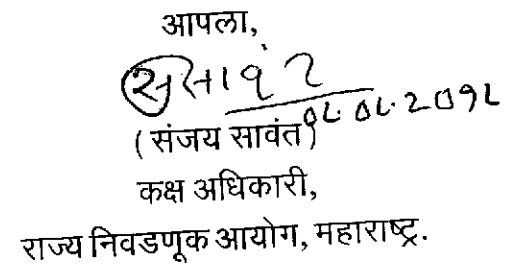 आपला,
(संजय सावंत)
कक्ष अधिकारी,
राज्य निवडणूक आयोग, महाराष्ट्र.